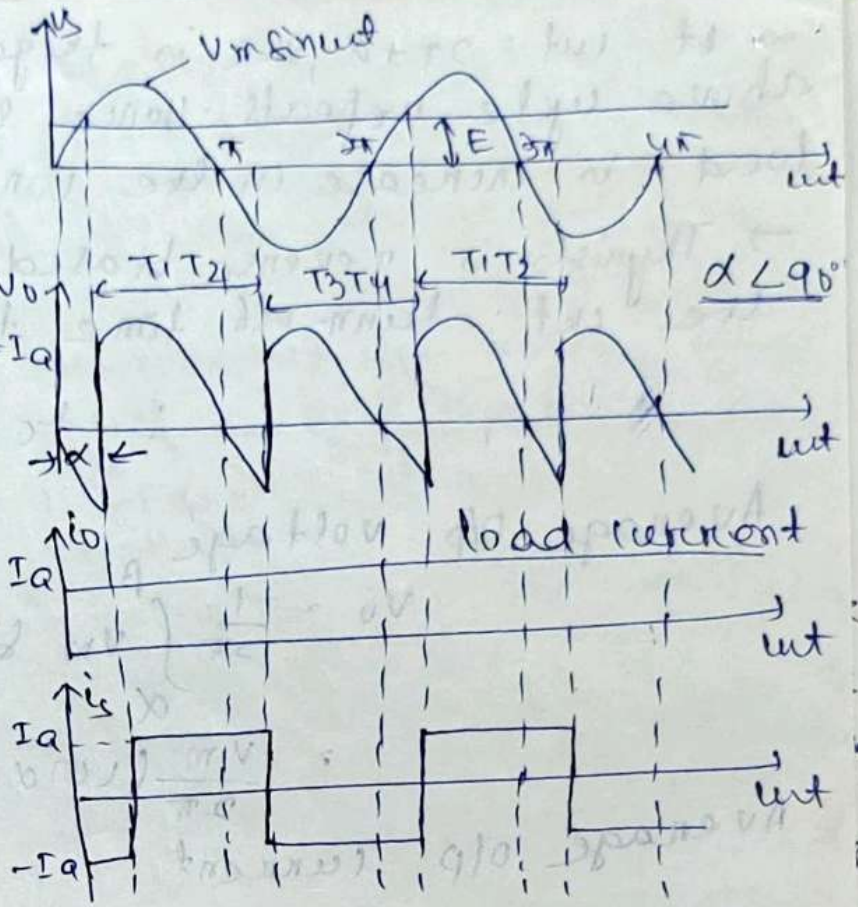 vs
Vm sinwt
E
π 2π 3π 4π
wt
T1 T2 T3 T4 T1 T2
α < 90°
Vo
Ia
α
wt
io
load current
Ia
wt
is
Ia
wt
-Ia